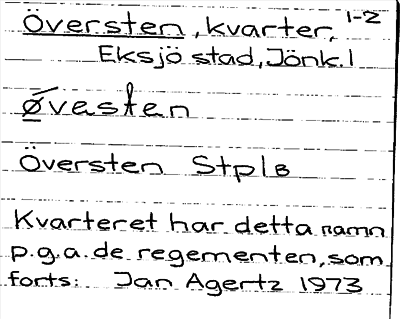 Översten, kvarter, 1-2
Eksjö stad, Jönk. l
Øvesten
Översten StplB
Kvarteret har detta namn
p.g.a. de regementen, som
forts: Jan Agertz 1973